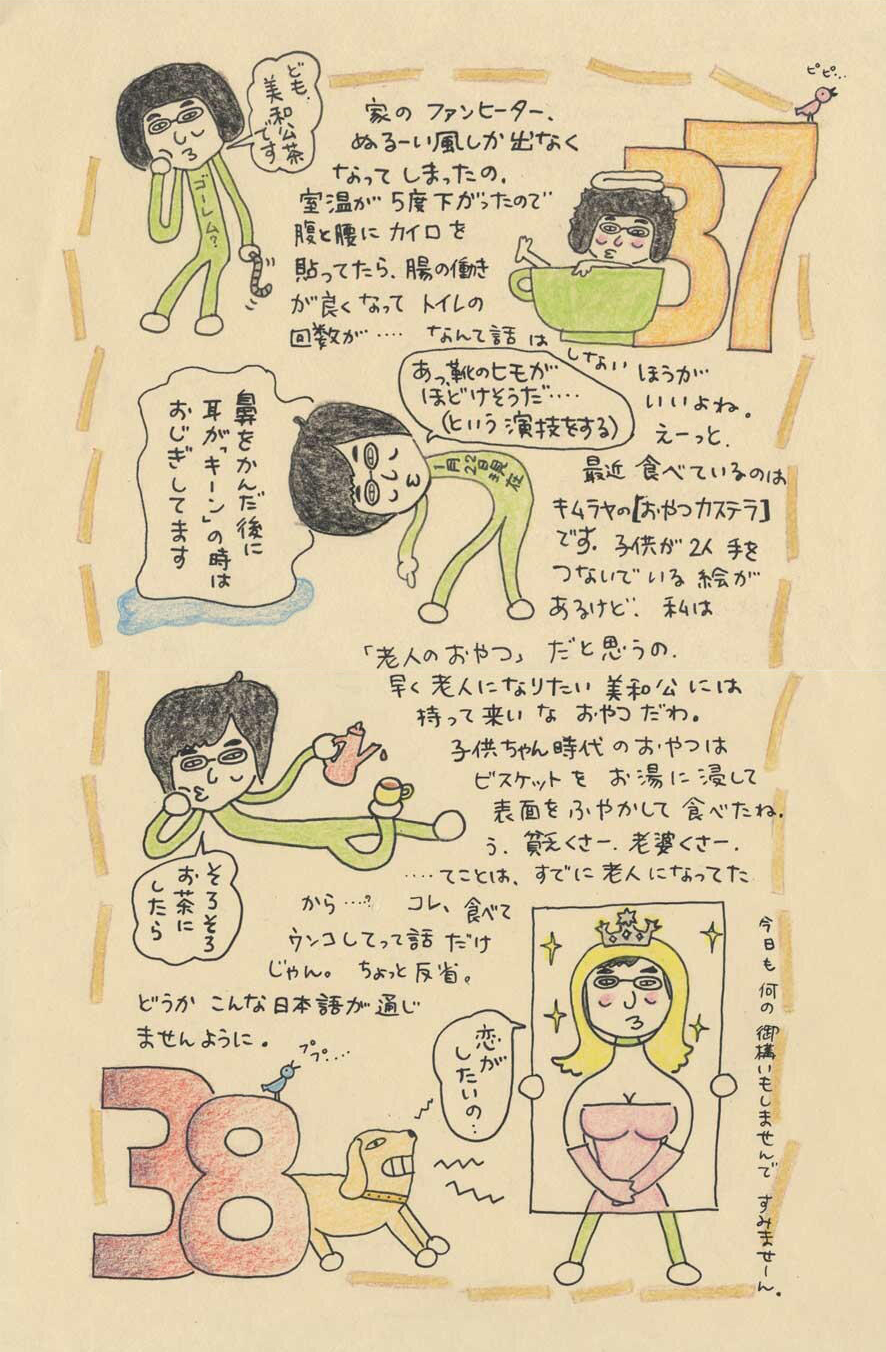 ども、
美和公茶
です
ゴーレム?
ピピ...
37
家の ファンヒーター、
ぬるーい風しか出なく
なってしまったの。
室温が 5度下がったので
腹と腰に カイロを
貼ってたら、腸の働き
が良くなって トイレの
回数が‥‥ なんて話は
しない ほうが
いいよね。
えーっと、
あっ、靴のヒモが
ほどけそうだ‥‥
(という演技をする)
1月22日現在
鼻をかんだ後に
耳が「キーン」の時は
おじぎしてます
最近 食べているのは
キムラヤの[おやつカステラ]
です。子供が 2人 手を
つないでいる 絵が
あるけど、私は
「老人のおやつ」だと思うの。
早く 老人になりたい 美和公には
持って来いな おやつだわ。
子供ちゃん時代のおやつは
ビスケットを お湯に浸して
表面をふやかして 食べたね。
う、貧乏くさー、老婆くさー。
‥‥てことは、すでに老人になってた
から‥‥? コレ、食べて
ウンコしてって話 だけ
じゃん。 ちょっと反省。
どうか こんな日本語が 通じ
ませんように。
そろそろ
お茶に
したら
恋が
したいの...
今日も 何の 御構いもしませんで すみませーん。
ププ....
38